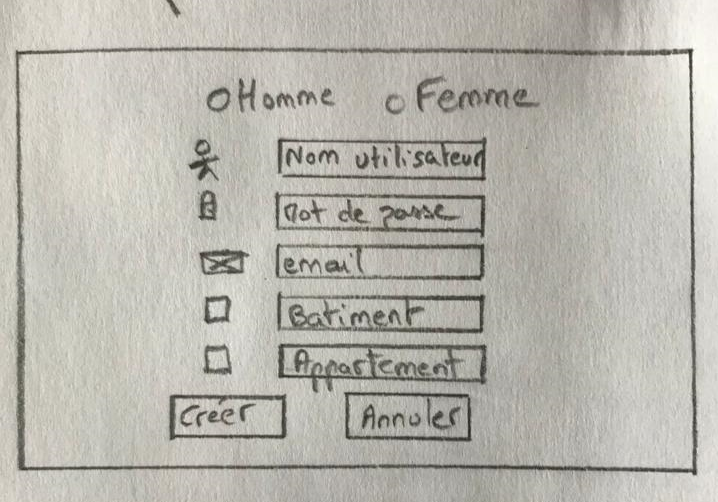 Homme Femme
Nom utilisateur
Mot de passe
email
Batiment
Appartement
Créer Annuler